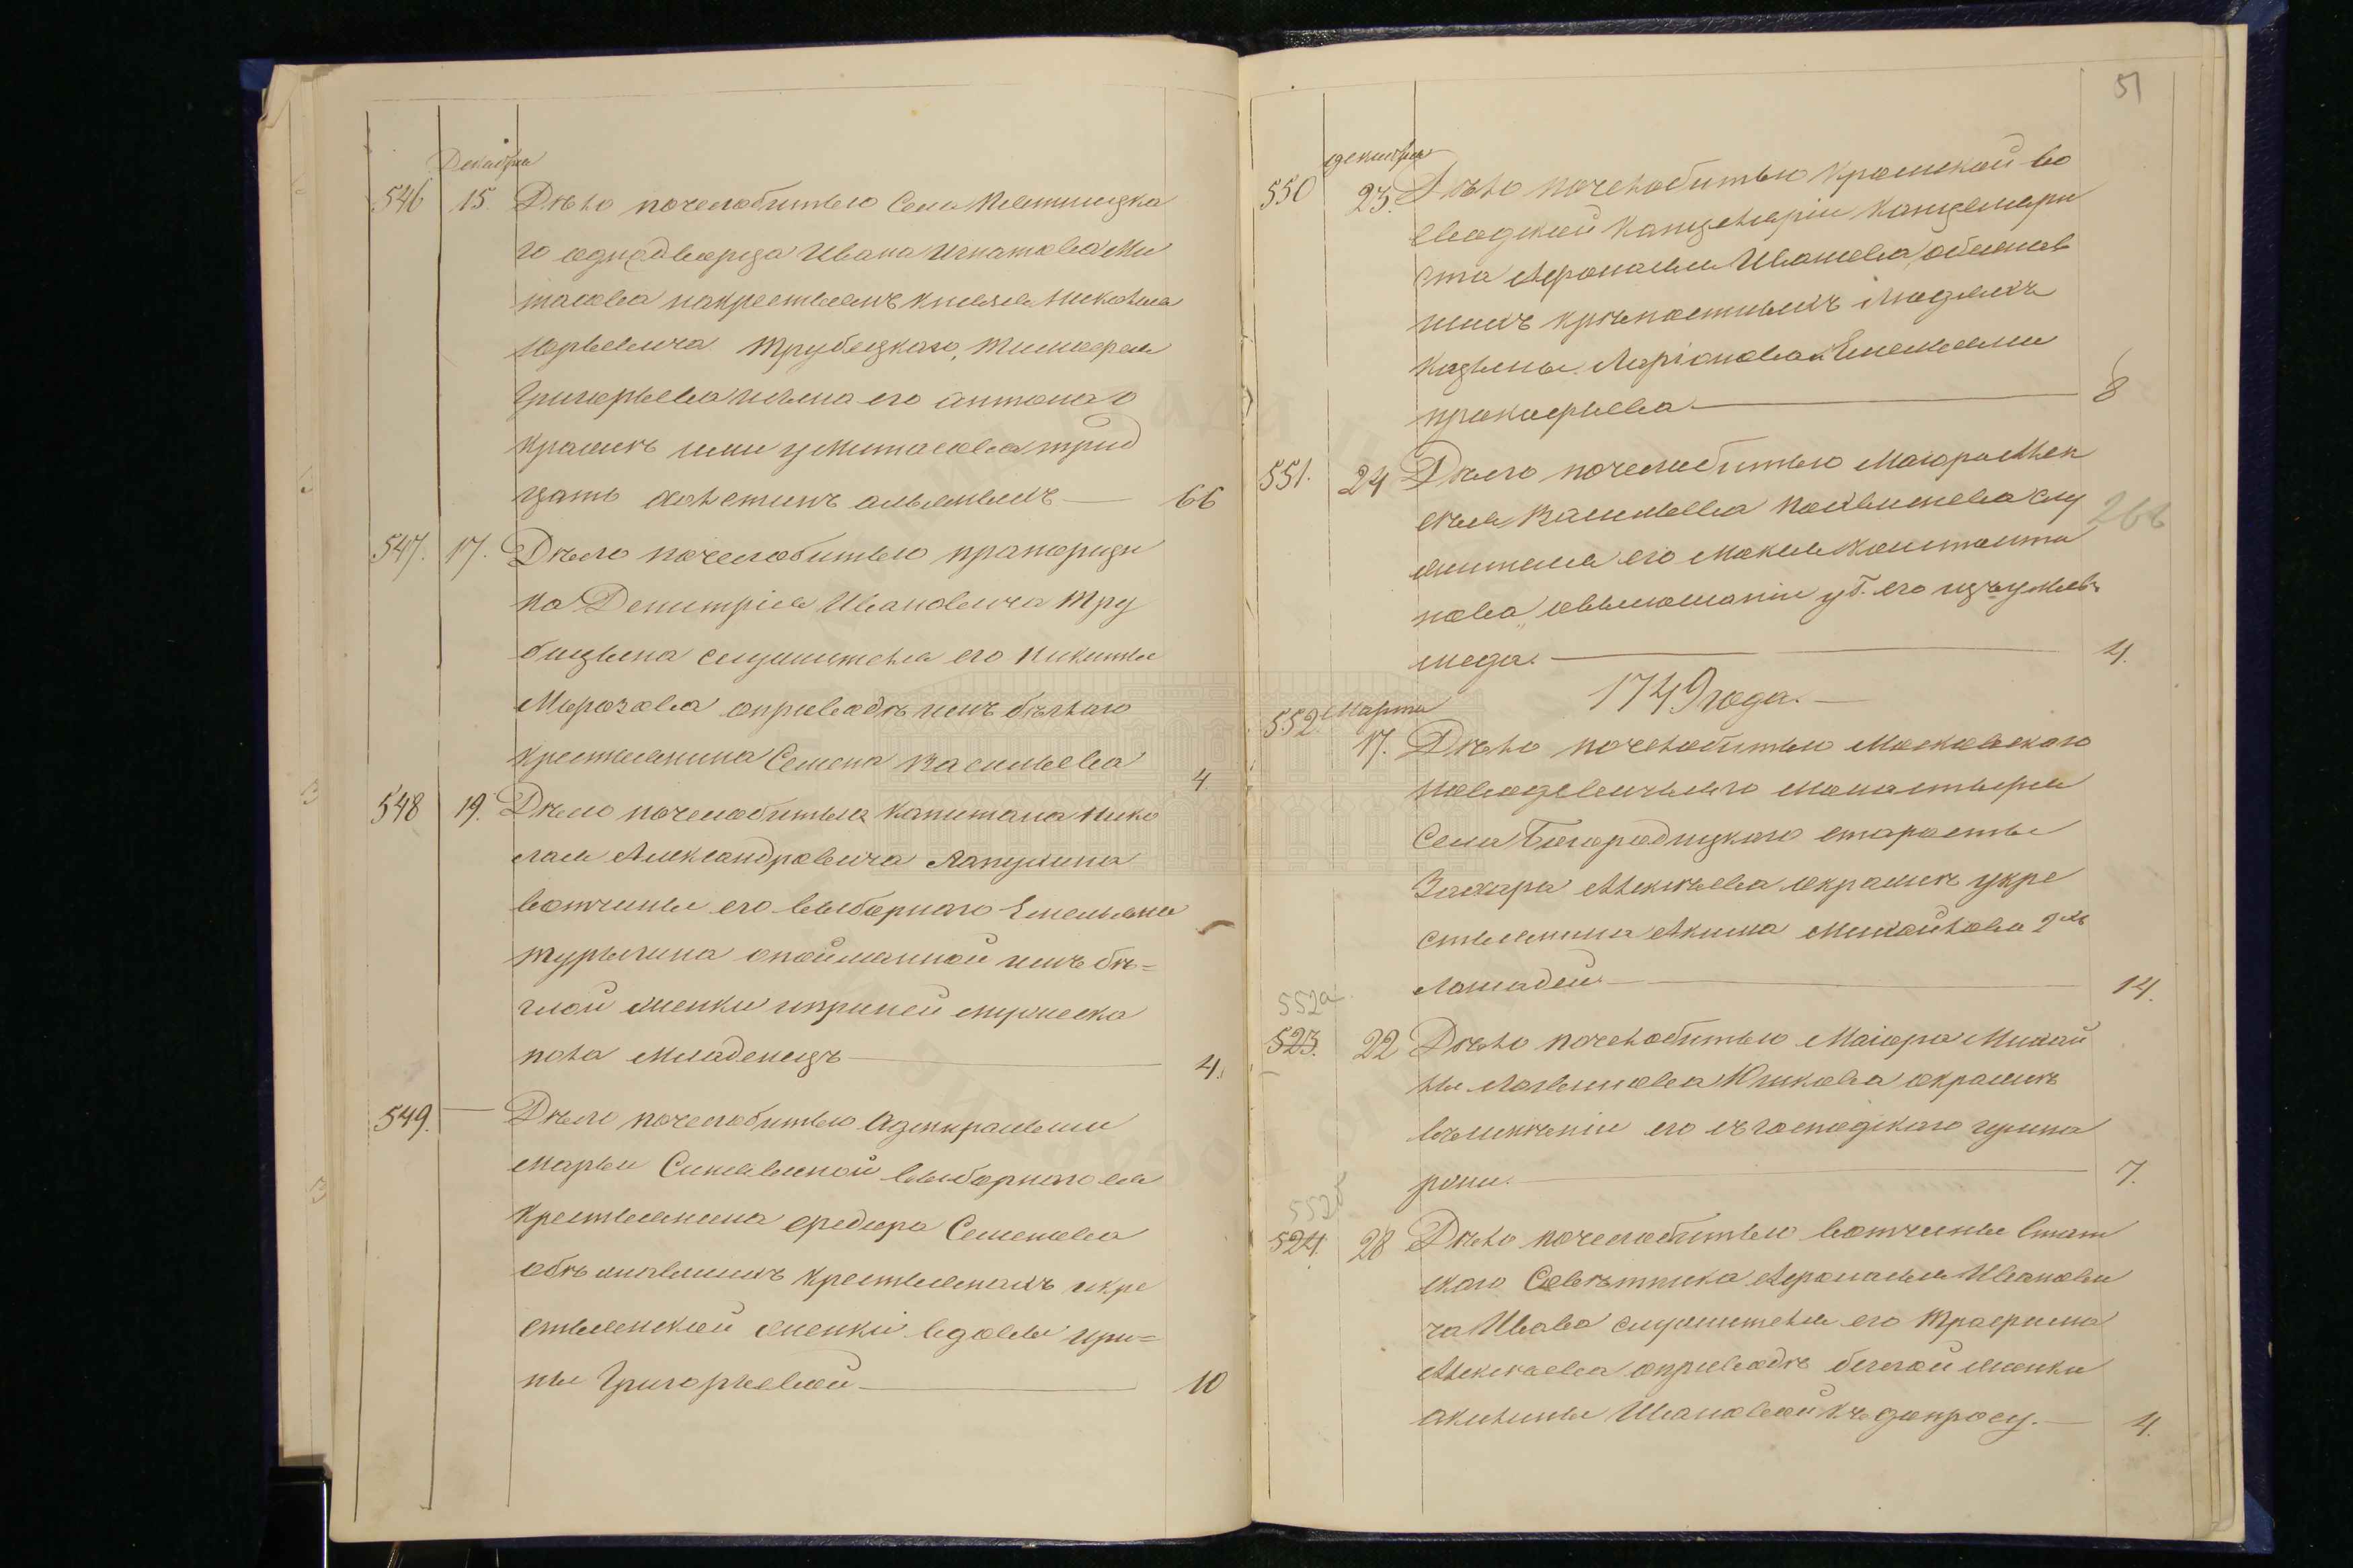 Декабря
546 15. Дѣло почелобитью Села Пятницка
го однодворца Ивана Игнатова Ми
тасова накрестьянъ князя Николая
Юрьевича Трубецкаго, Тимофея
Григорьева исына его антона о
кражѣ ими у Митасова трид
цать холстинъ альняныхъ — 66
547. 17. Дѣло почелобитью прапорщи
ка Дмитрія Ивановича Тру
бицына служителя его Никиты
Морозова оприводѣ имъ бѣглаго
крестьянина Семена Васильева 4.
548 19. Дѣло почелобитью Капитана Нико
лая Александровича Лапухина
вотчины его выборнаго Емельяна
Турыгина опойманной имъ бѣ=
глой женки иприней мужеска
пола младенецъ — 4.
549. — Дѣло почелобитью Адмиральши
Марьи Синявиной выборнаго ея
Крестьянина Федора Семенова
обѣжавшихъ крестьянахъ икре
стьянской женки вдовы Ири=
ны Григорьевой — 10
51
декабря
550 23. Дѣло почелобитью Кромской во
еводской Канцеляріи Канцеляри
ста Афонасья Иванова, обежав
шихъ крѣпостныхъ людяхъ
Козьмы Ларіонова и Емельяна
Прокофьева — 8
551. 24 Дѣло почелобитью Маіора Алек
сѣя Васильева слу
жителя его Мокея Константи
нова, овыломаніи уб. его изъ ульевъ
меда. — 4.
266
1749 года. —
552 Марта
17. Дѣло почелобитью Московскаго
Новодевичьяго монастыря
Села Богородицкаго старосты
Захара Алексѣева окражѣ укре
стьянина Акима Михайлова 2хъ
лошадей — 14.
552а
523. 22 Дѣло почелобитью Маіора Михай
лы Юшкова окражѣ
его господскаго
— 7.
552б
524. 28 Дѣло почелобитью вотчины Стат
скаго Совѣтника Афонасья Иванови
ча Ивова служителя его Трафима
Алексѣева оприводѣ беглой женки
Акилины Ивановой къ допросу. — 4.